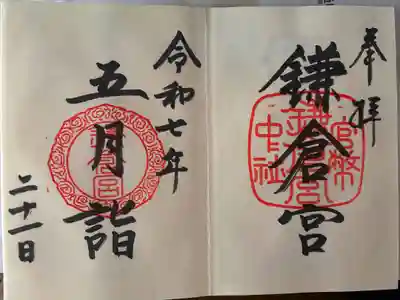 奉拝
鎌倉宮
官幣
鎌倉宮
中社
令和七年
五月詣
二十一日